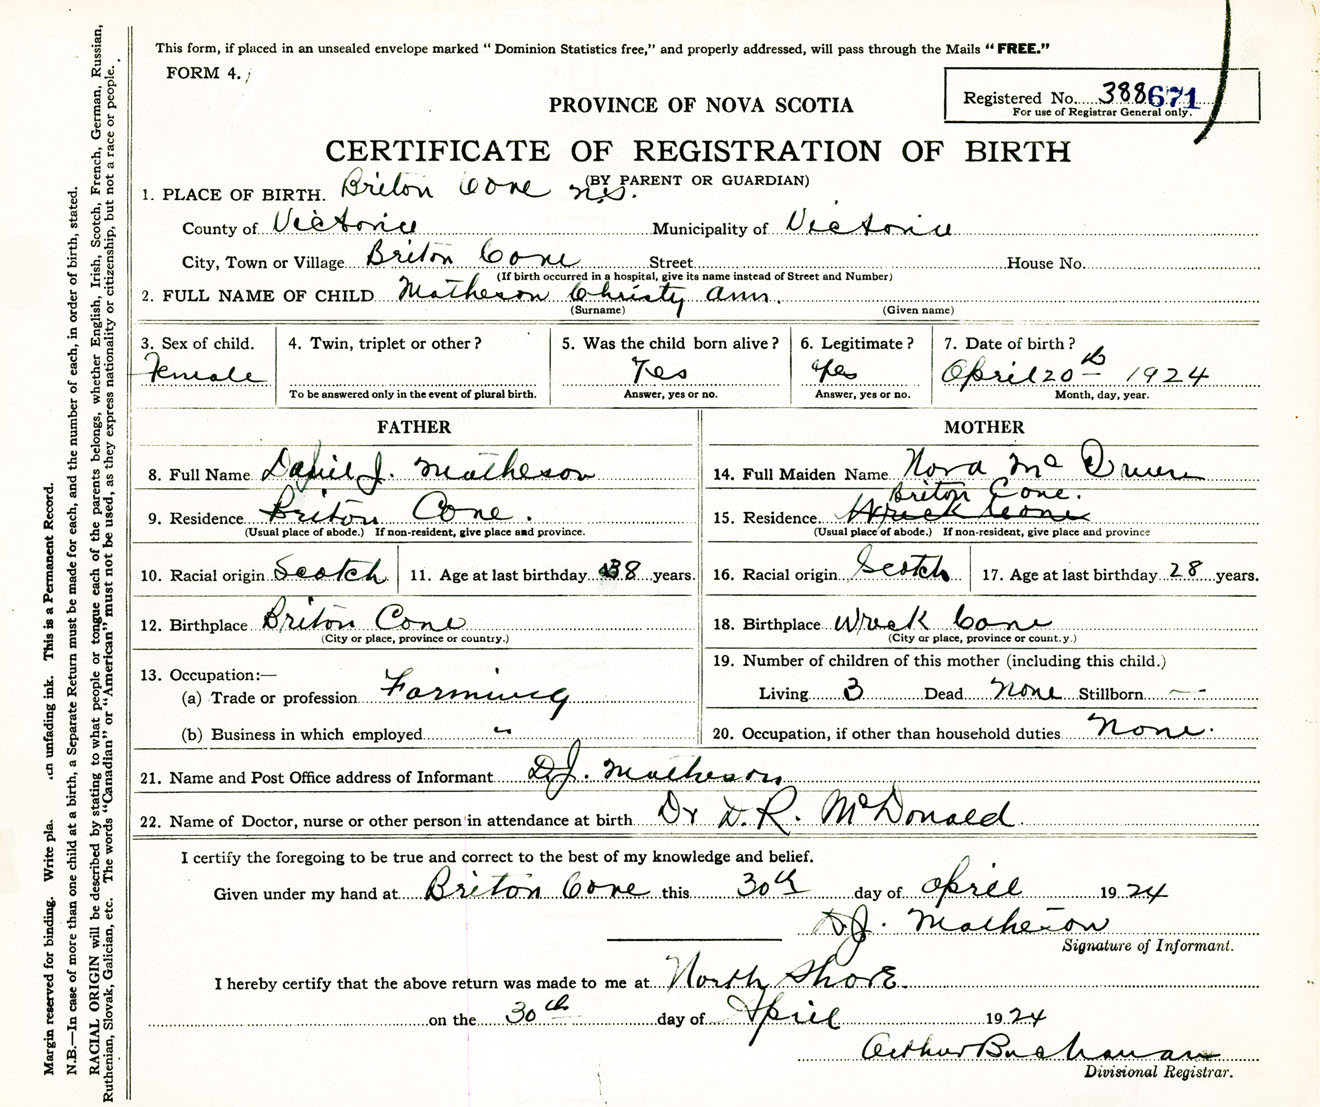 This form, if placed in an unsealed envelope marked “ Dominion Statistics free,” and properly addressed, will pass through the Mails “FREE.”
FORM 4.
Registered No. 388671
For use of Registrar General only.
PROVINCE OF NOVA SCOTIA
CERTIFICATE OF REGISTRATION OF BIRTH
(BY PARENT OR GUARDIAN)
1. PLACE OF BIRTH. Briton Cove N.S.
County of Victoria Municipality of Victoria
City, Town or Village Briton Cove Street House No.
(If birth occurred in a hospital, give its name instead of Street and Number)
2. FULL NAME OF CHILD Matheson Christy Ann.
(Surname) (Given name)
3. Sex of child. 4. Twin, triplet or other? 5. Was the child born alive? 6. Legitimate? 7. Date of birth?
Female Yes Yes April 20th 1924
To be answered only in the event of plural birth. Answer, yes or no. Answer, yes or no. Month, day, year.
FATHER MOTHER
8. Full Name Daniel J. Matheson 14. Full Maiden Name Nora Mc
Briton Cove.
9. Residence Briton Cove. 15. Residence Wreck Cove
(Usual place of abode.) If non-resident, give place and province. (Usual place of abode.) If non-resident, give place and province
10. Racial origin Scotch 11. Age at last birthday 38 years. 16. Racial origin Scotch 17. Age at last birthday 28 years.
12. Birthplace Briton Cove 18. Birthplace Wreck Cove
(City or place, province or country.) (City or place, province or count.y.)
13. Occupation:— 19. Number of children of this mother (including this child.)
(a) Trade or profession Farming Living 3 Dead None Stillborn —
(b) Business in which employed " 20. Occupation, if other than household duties None.
21. Name and Post Office address of Informant D.J. Matheson
22. Name of Doctor, nurse or other person in attendance at birth Dr D.R. McDonald
I certify the foregoing to be true and correct to the best of my knowledge and belief.
Given under my hand at Briton Cove this 30th day of April 1924
D.J. Matheson
Signature of Informant.
I hereby certify that the above return was made to me at North Shore
on the 30th day of April 1924
Arthur Buchanan
Divisional Registrar.
Margin reserved for binding. Write pla unfading ink. This is a Permanent Record.
N.B.—In case of more than one child at a birth, a Separate Return must be made for each, and the number of each, in order of birth, stated.
RACIAL ORIGIN will be described by stating to what people or tongue each of the parents belongs, whether English, Irish, Scotch, French, German, Russian,
Ruthenian, Slovak, Galician, etc. The words “Canadian” or “American” must not be used, as they express nationality or citizenship, but not a race or people.